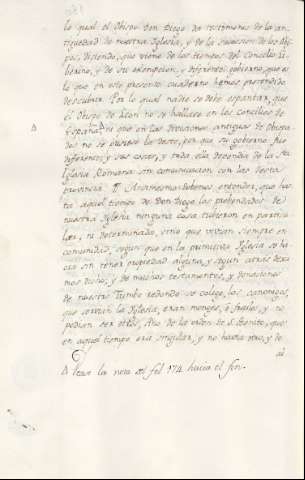 lo qual el Obispo Don Diego da testimonio de la an-
tiguedad de nuestra Iglesia, y de la sucesion de los Obis-
pos, diciendo, que viene de los tiempos del Concilio Li-
berino, y de su exempcion, y diferente gobierno, que es
lo que en este presente quaderno hemos pretendido
descubrir. Por lo qual nadie se debe espantar, que
el Obispo de Leon no se hallase en los Concilios de
España, ni que en las divisiones antiguas de Obispa-
dos no se hiciese de esto, por que su gobierno fue
diferente, y sus cosas, y toda ella dependia de la Sta.
Iglesia Romana sin comunicacion con las de esta
provincia. ¶ Asimesmo debemos entender, que has-
ta aquel tiempo de Don Diego las prebendados de
nuestra Iglesia ninguna cosa tubieron en particu-
lar, ni determinado, sino que vivian siempre en
comunidad, segun que en la primitiva Iglesia se ha-
cia sin tener propiedad alguna, y segun atrás dexa-
mos dicho, y de muchos testamentos, y donaciones
de nuestro Tumbo redondo se colige, los canonigos,
que servian la Iglesia, eran monges, ò frayles, y no
podian ser otros, sino de la orden de S. Benito, que
en aquel tiempo era singular, y no havia otro, y de
al
Δ Pease la nota del fol. 174 hacia el fin.